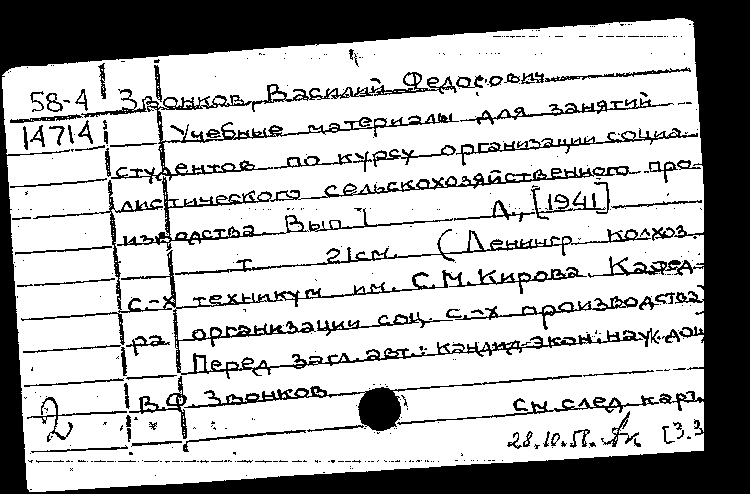 58-4 Звонков, Василий Федорович
14714 Учебные материалы для занятий
студентов по курсу организации социа-
листического сельскохозяйственного про-
изводства. Вып. 1 Л., [1941]
т. 21см. (Ленингр. колхоз.
с.-х техникум им. С.М. Кирова. Кафед-
ра организации соц. с.-х производства
Перед загл. авт.: кандид. экон. наук доц
В.Ф. Звонков
2 см. след. карт.
28.10.58. [3.3